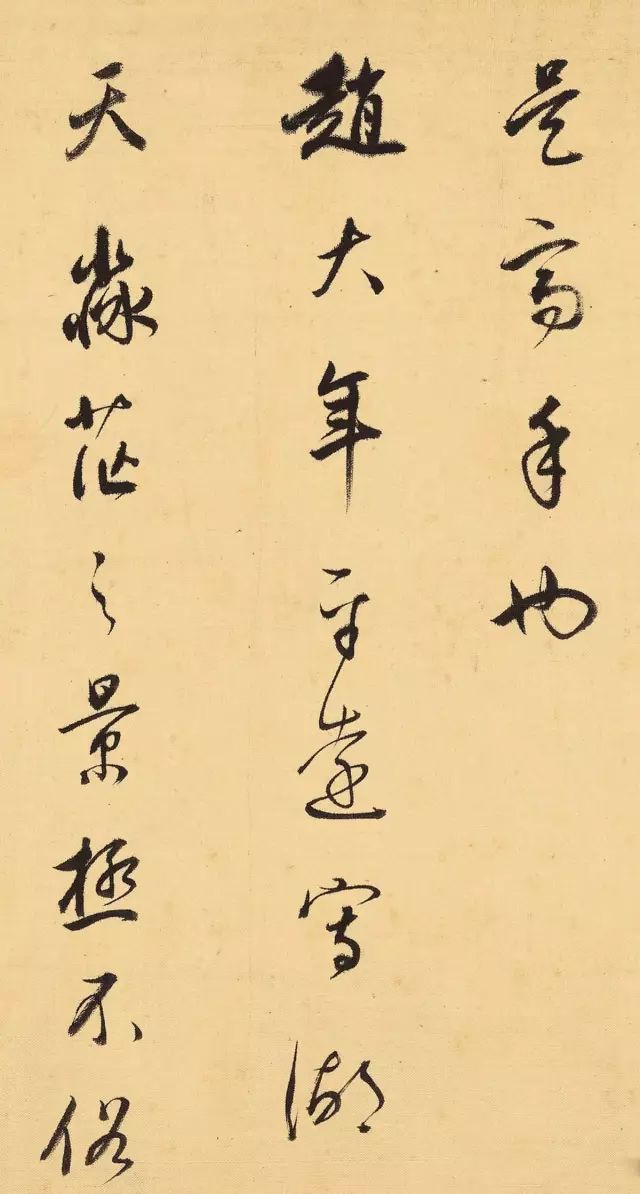 是高手也
趙大年平遠寫湖
天淼茫之景極不俗